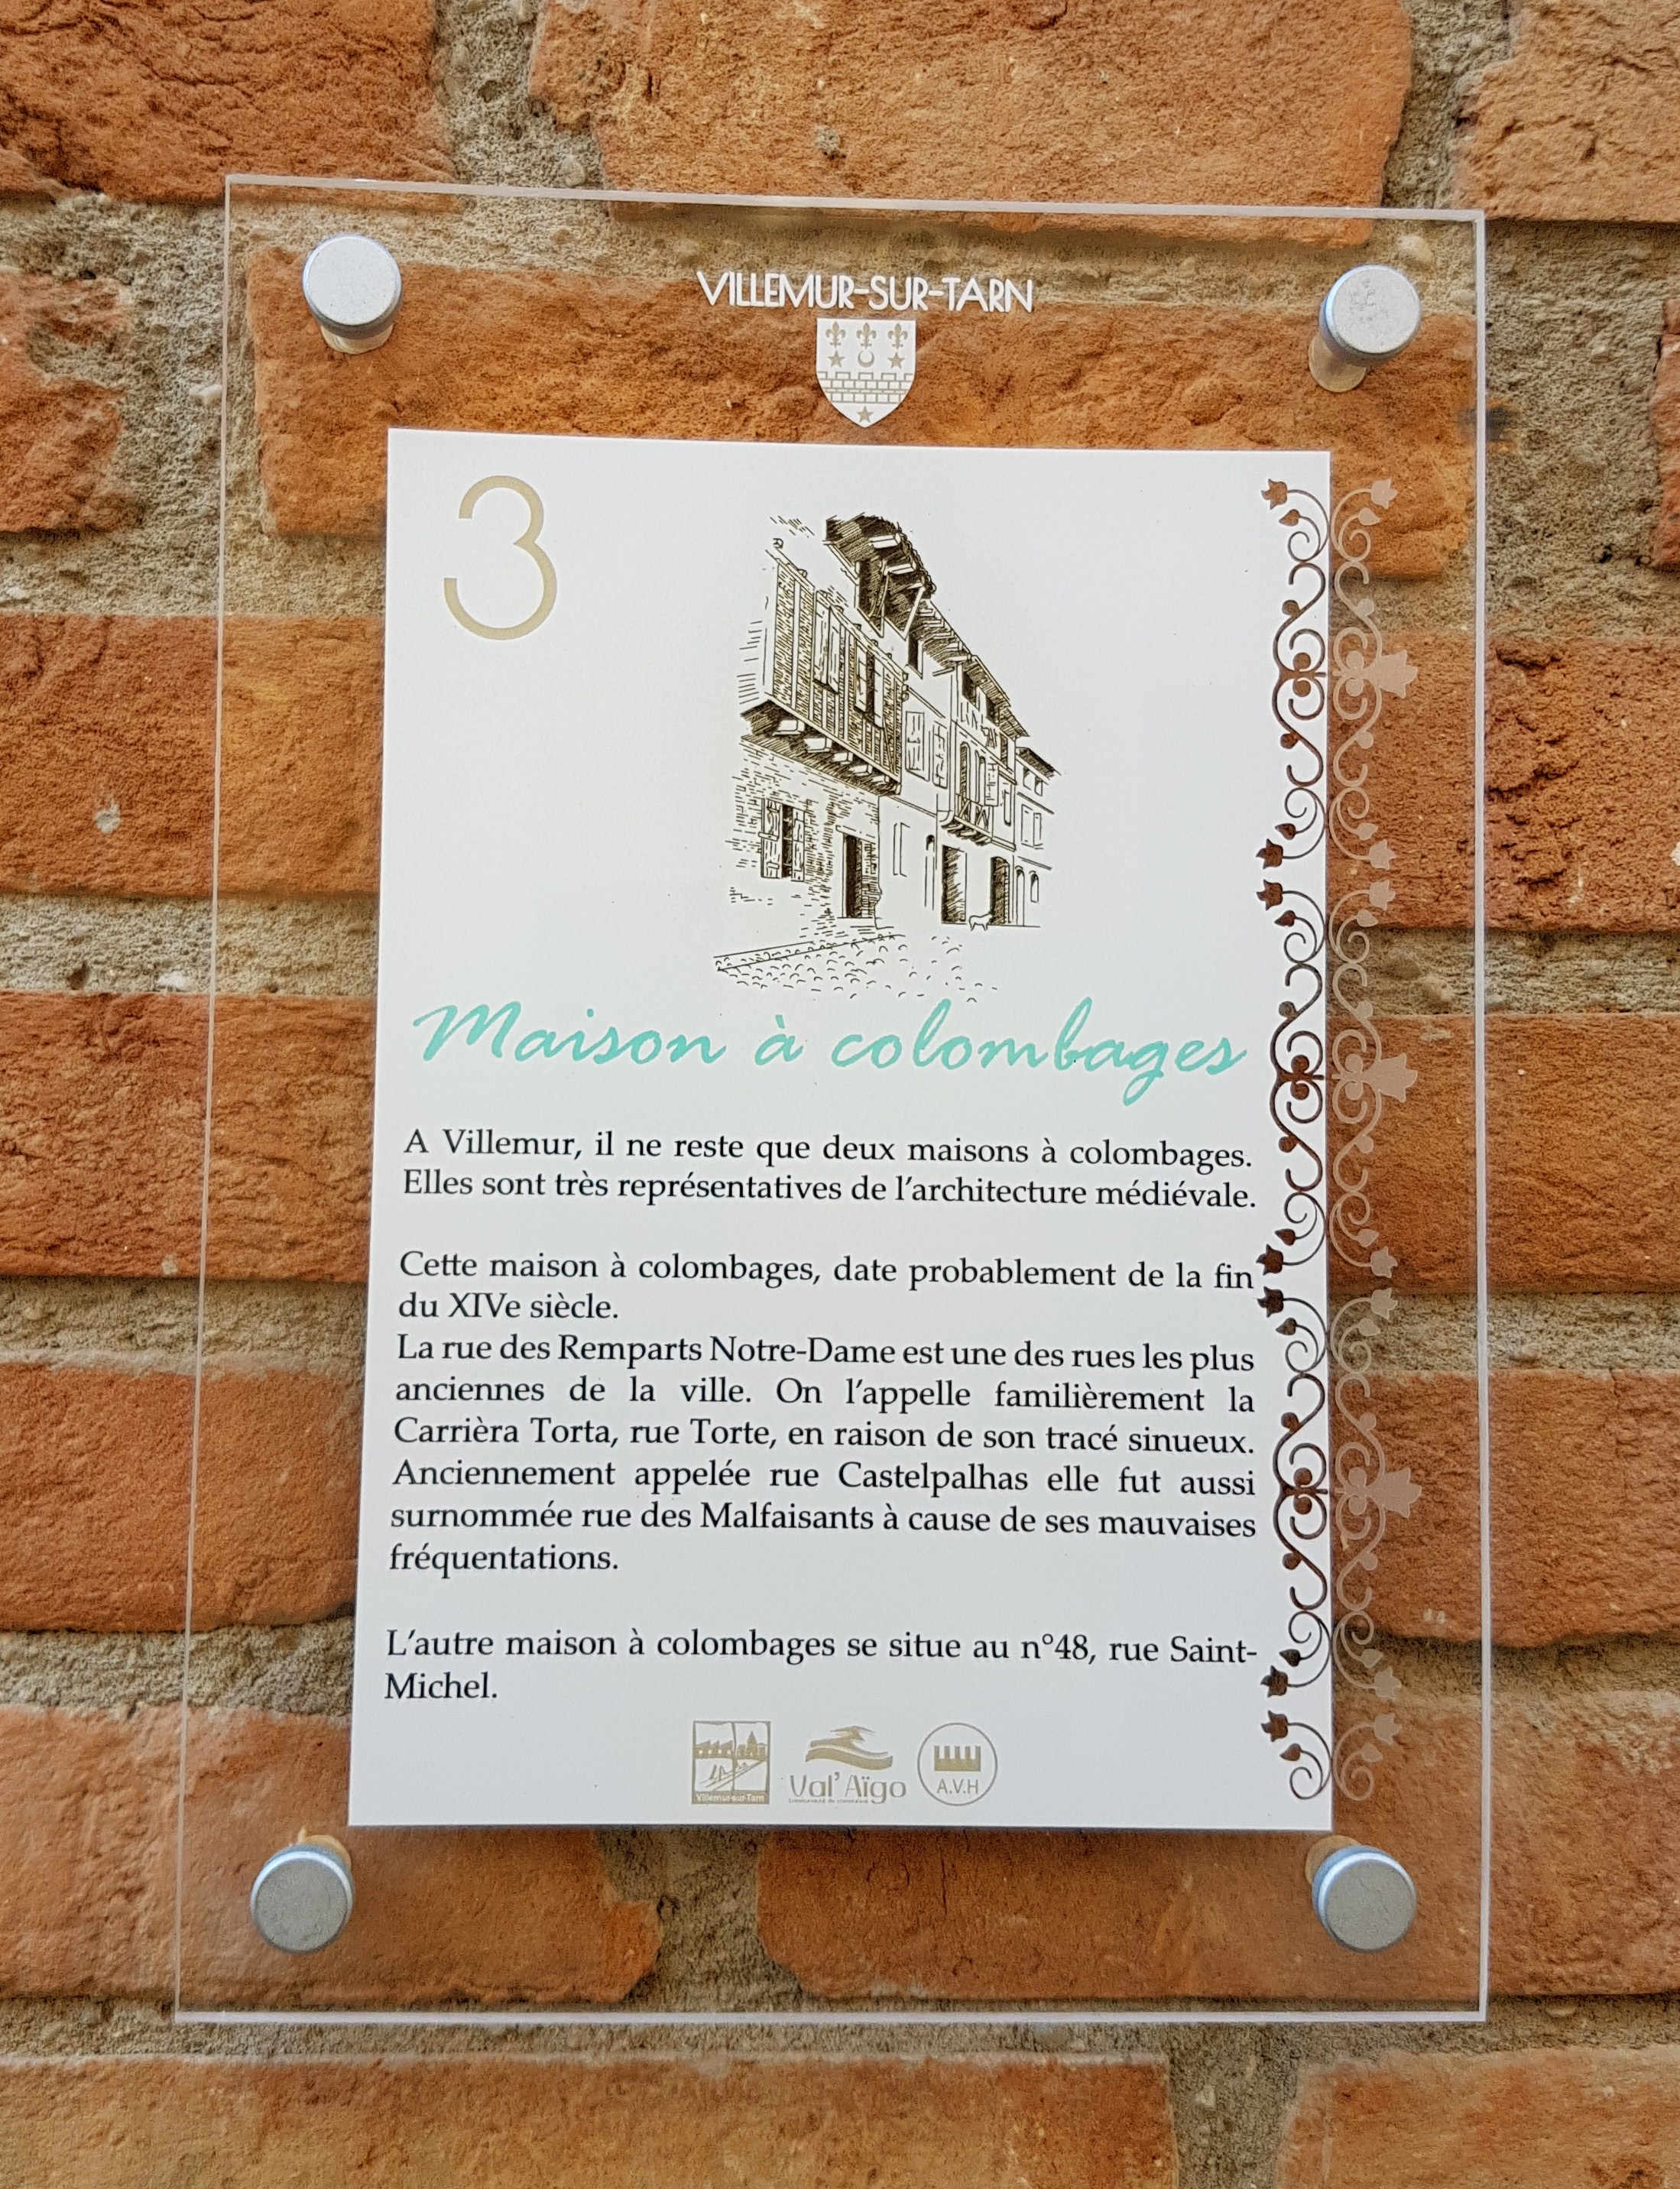 VILLEMUR-SUR-TARN
3
Maison à colombages
A Villemur, il ne reste que deux maisons à colombages.
Elles sont très représentatives de l'architecture médiévale.
Cette maison à colombages, date probablement de la fin
du XIVe siècle.
La rue des Remparts Notre-Dame est une des rues les plus
anciennes de la ville. On l'appelle familièrement la
Carrièra Torta, rue Torte, en raison de son tracé sinueux.
Anciennement appelée rue Castelpalhas elle fut aussi
surnommée rue des Malfaisants à cause de ses mauvaises
fréquentations.
L'autre maison à colombages se situe au n°48, rue Saint-
Michel.
Villemur-sur-Tarn
Val'Aïgo
Communauté de communes
A.V.H